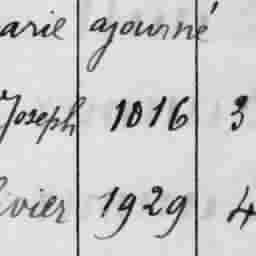 arie ajourné
Joseph 1016 3
vier 1929 4